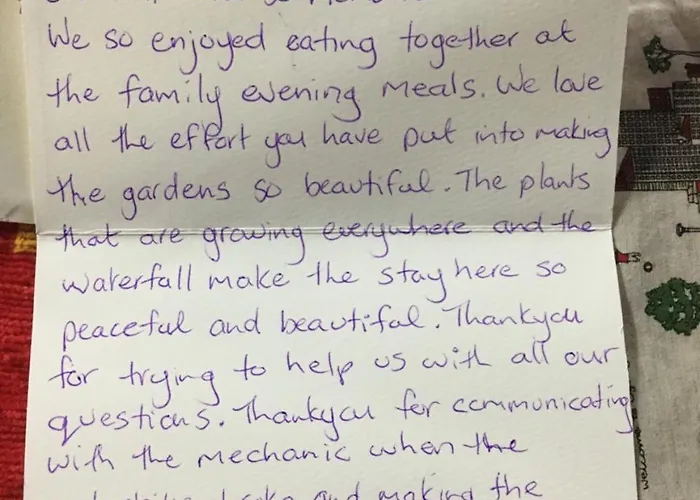 We so enjoyed eating together at
the family evening meals. We love
all the effort you have put into making
the gardens so beautiful. The plants
that are growing everywhere and the
waterfall make the stay here so
peaceful and beautiful. Thankyou
for trying to help us with all our
questions. Thankyou for communicating
with the mechanic when the
and making the